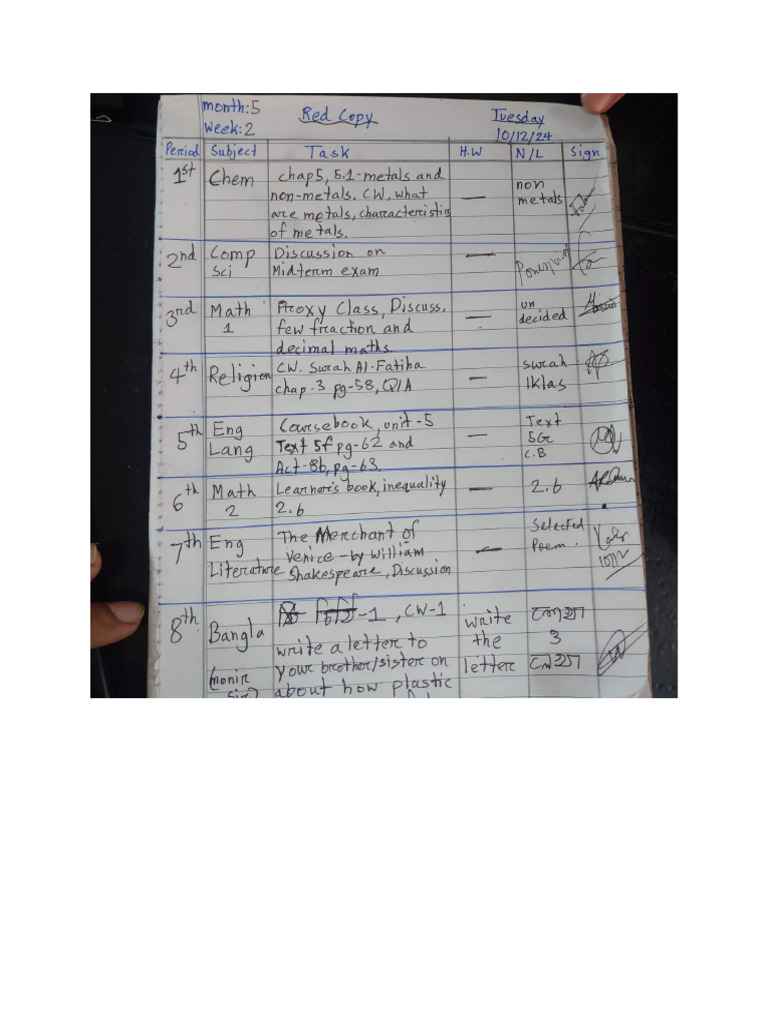 month:5
Week:2
Red Copy
Tuesday
10/12/24
Period Subject Task H.W N/L Sign
1st Chem chap5, 5.1-metals and
non-metals. CW, what
are metals, characteristics
of metals.
— non
metals
2nd Comp
Sci
Discussion on
Midterm exam
—
3rd Math
1
Proxy Class, Discuss,
few fraction and
decimal maths.
— un
decided
4th Religion CW. Surah Al-Fatiha
chap-3 pg-58, Q/A
— surah
Iklas
5th Eng
Lang
Coursebook, unit-5
Text 5f pg-62 and
Act-8b, pg-63.
— Text
5Gr
C.B
6th Math
2
Learner's book, inequality
2.6
— 2.6
7th Eng
Literature
The Merchant of
Venice -by William
Shakespeare, Discussion
— Selected
Poem.
8th Bangla
(monir
sir)
-1, CW-1
write a letter to
your brother/sister on
about how plastic
write
the
letter
3